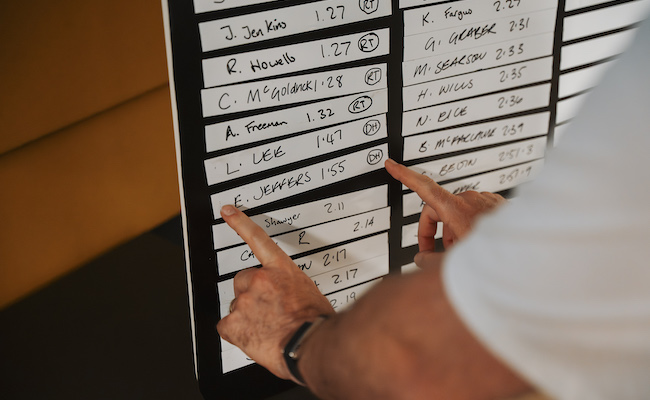 J. Jenkins 1.27 RT
R. Howells 1.27 RT
C. McGoldrick 1.28 RT
A. Freeman 1.32 RT
L. LEE 1.47 DH
E. JEFFERS 1.55 DH
Shawyer 2.11
R 2.14
2.17
2.17
2.19
K. Fargus 2.27
G. GRABER 2.31
M. SEARSON 2.33
H. WILLS 2.35
N. RICE 2.36
2.39
2.51.3